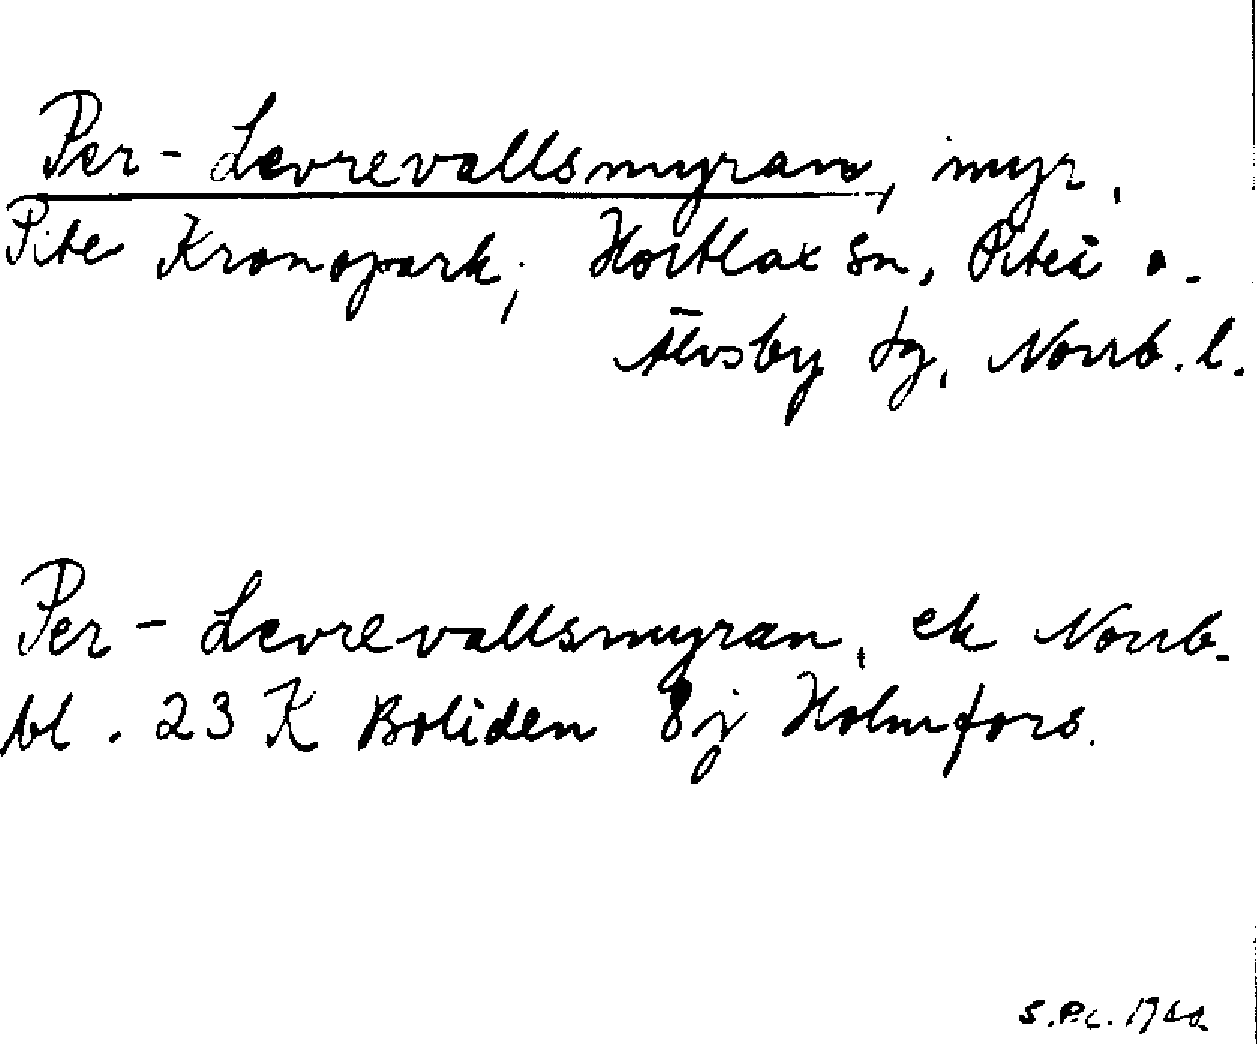 Per-Levrevallsmyran, myr,
Pite Kronopark, Hortlax sn, Piteå o.
Älvsby tg, Norrb. l.
Per-Levrevallsmyran, ek Norrb.
bl. 23 K Boliden 8j Holmfors.